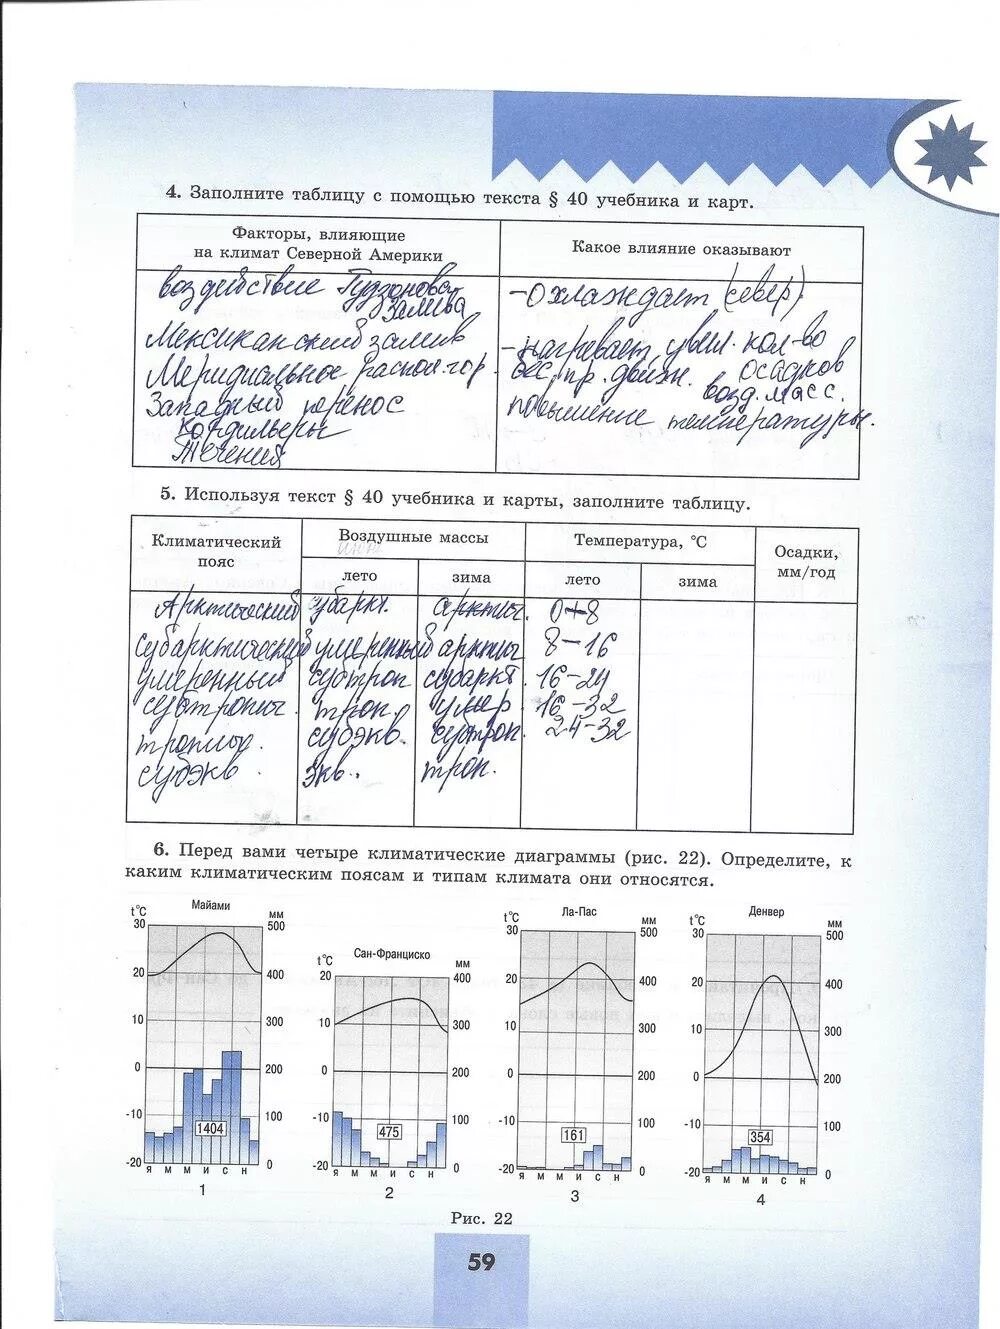 4. Заполните таблицу с помощью текста § 40 учебника и карт.
Факторы, влияющие
на климат Северной Америки
Какое влияние оказывают
воздействие Гудзонова
залива
- охлаждает (север)
Мексиканский залив
- нагревает, увел. кол-во
осадков
Меридиальное распол. гор.
бес.пр. движ.
возд. масс.
Западный перенос
повышение температуры.
Кордильеры
Течения
5. Используя текст § 40 учебника и карты, заполните таблицу.
Климатический
пояс
Воздушные массы
Температура, °С
Осадки,
мм/год
лето зима лето зима
Арктический субаркт. арктич. 0+8
субарктический умеренный арктич 8-16
умеренный субтроп субаркт. 16-24
субтропич. троп. умер 16-32
тропич. субэкв. субтроп. 24-32
субэкв. экв. троп.
6. Перед вами четыре климатические диаграммы (рис. 22). Определите, к
каким климатическим поясам и типам климата они относятся.
Майами
t°C мм
30 500
20 400
10 300
0 200
-10 100
-20 0
1404
я м м и с н
1
Сан-Франциско
t°C мм
20 400
10 300
0 200
-10 100
-20 0
475
я м м и с н
2
Ла-Пас
t°C мм
30 500
20 400
10 300
0 200
-10 100
-20 0
161
я м м и с н
3
Денвер
t°C мм
30 500
20 400
10 300
0 200
-10 100
-20 0
354
я м м и с н
4
Рис. 22
59